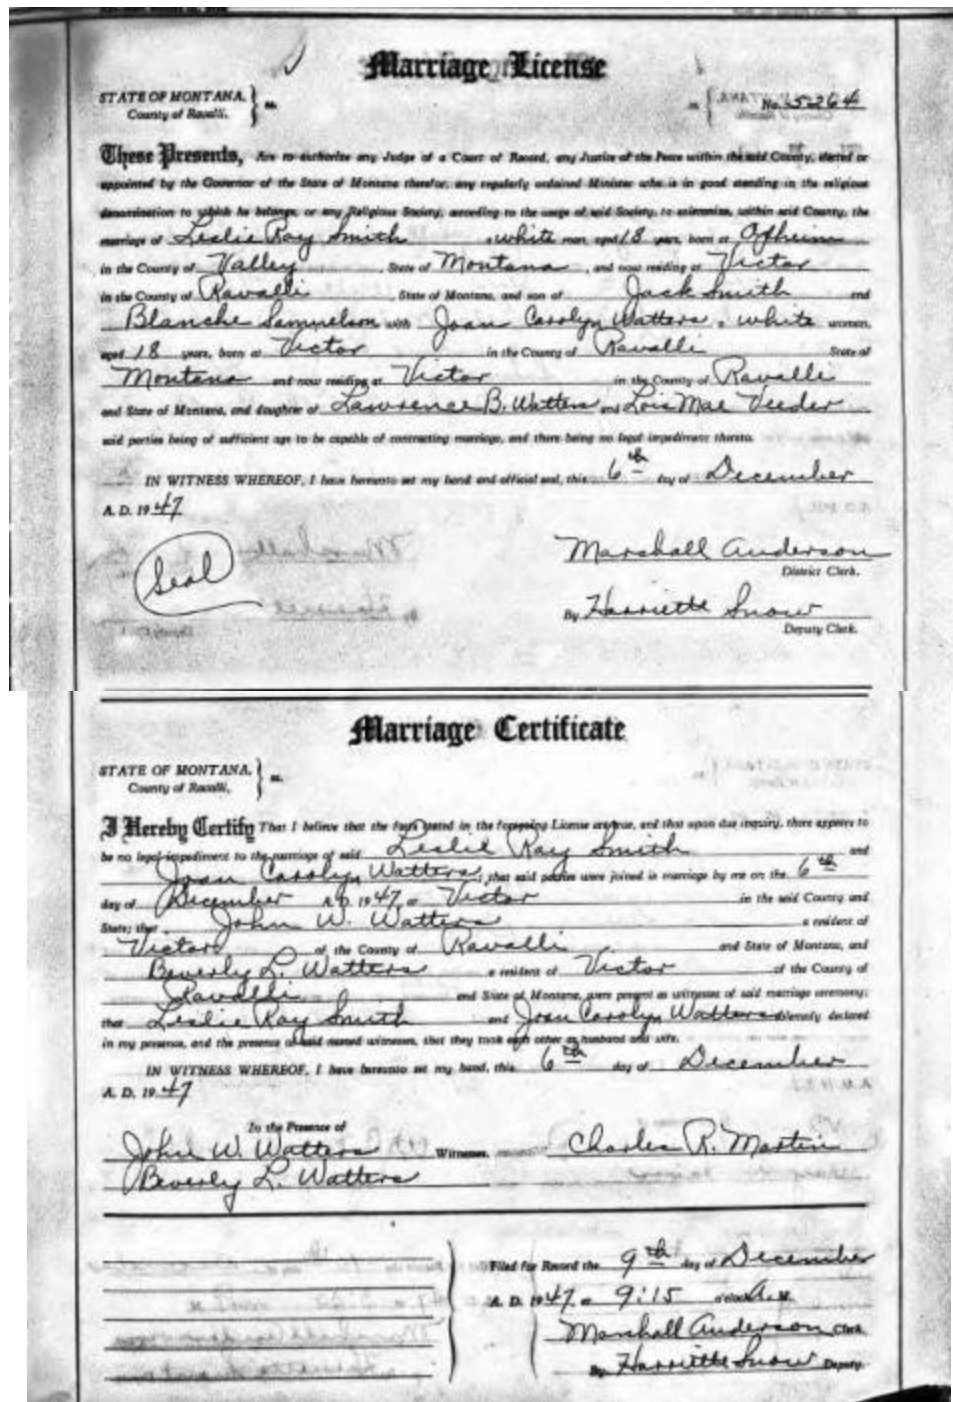 Marriage License
STATE OF MONTANA, } ss.
County of Ravalli.
No. 5264
These Presents, Are to authorize any Judge of a Court of Record, any Justice of the Peace within the said County, elected or
appointed by the Governor of the State of Montana therefor, any regularly ordained Minister who is in good standing in the religious
denomination to which he belongs, or any Religious Society, according to the usage of said Society, to solemnize, within said County, the
marriage of Leslie Ray Smith a white man, aged 18 years, born at Opheim
in the County of Valley, State of Montana, and now residing at Victor
in the County of Ravalli State of Montana, and son of Jack Smith and
Blanche Samuelson with Joan Carolyn Watters a white woman,
aged 18 years, born at Victor in the County of Ravalli State of
Montana and now residing at Victor in the County of Ravalli
and State of Montana, and daughter of Lawrence B. Watters and Lois Mae Veeder
said parties being of sufficient age to be capable of contracting marriage, and there being no legal impediment thereto.
IN WITNESS WHEREOF, I have hereunto set my hand and official seal, this 6th day of December
A. D. 1947
(Seal)
Marshall Anderson
District Clerk.
By Harriette Snow
Deputy Clerk.
Marriage Certificate
STATE OF MONTANA, } ss.
County of Ravalli,
I Hereby Certify That I believe that the facts stated in the foregoing License are true, and that upon due inquiry, there appears to
be no legal impediment to the marriage of said Leslie Ray Smith and
Joan Carolyn Watters; that said parties were joined in marriage by me on the 6th
day of December A. D. 1947 at Victor in the said County and
State; that John W. Watters a resident of
Victor of the County of Ravalli and State of Montana, and
Beverly L. Watters a resident of Victor of the County of
Ravalli and State of Montana, were present as witnesses of said marriage ceremony;
that Leslie Ray Smith and Joan Carolyn Watters solemnly declared
in my presence, and the presence of said named witnesses, that they took each other as husband and wife.
IN WITNESS WHEREOF, I have hereunto set my hand, this 6th day of December
A. D. 1947
In the Presence of
John W. Watters Witnesses. Charles R. Martin
Beverly L. Watters
Filed for Record the 9th day of December
A. D. 1947 at 9:15 o'clock A. M.
Marshall Anderson Clerk
By Harriette Snow Deputy.